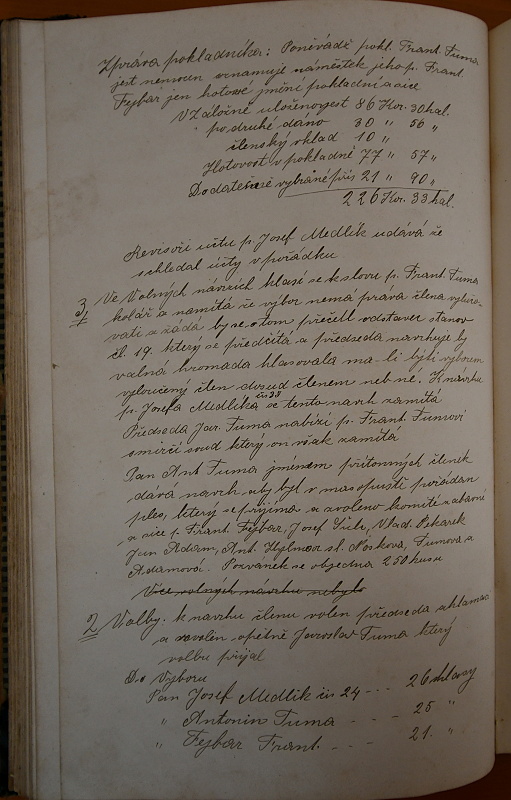 Zpráva pokladníka: Poněvádě pokl. Frant. Tuma
jest nemocen oznamuje náměstek jeho p. Frant.
Fejbar jen hotové jmění pokladní a sice
V Záložně uloženo jest 86 Kor. 30 hal.
po druhé dáno 30 " 56 "
členský vklad 10 "
Hotovost v pokladně 77 " 57 "
Dodatečně vybráné přís 21 " 90 "
226 Kor. 33 hal.
Revisoři učtu p. Josef Medlík udává že
schledal účty v pořádku
3, Ve Volných návrzích hlasí se k slovu p. Frant. Tuma
kolář a namítá že výbor nemá práva člena vylučo-
vati a žádá by se o tom přečetl odstavec stanov
čl. 19. který se předčítá a předseda navrhuje by
valná hromada hlasovala má-li býti výborem
vyloučený člen dosud členem neb né. K návrhu
p. Josefa Medlíka čís 38 se tento navrh zamítá
Předseda Jar. Tuma nabízí p. Frant. Tumovi
smírčí soud který on však zamítá
Pan Ant Tuma jménem přítomných členek
dává navrh aby byl v masopustě pořádan
ples, který se příjímá a zvoleno komité zabavní
a sice p. Frant. Fejbar, Josef, Vlad. Pekarek
Jan Adam, Ant. Hylmar sl. Nosková, Tumova a
Adamová. Pozvánek se objedna 250 kusu
Více volných návrhu nebylo
2, Volby: k navrhu členu volen předseda aklamací
a zvolen opětně Jaroslav Tuma který
volbu přijal
Do Výboru
Pan Josef Medlík čís 24 - - - 26 hlasy
" Antonin Tuma - - - 25 "
" Fejbar Frant. - - - 21. "